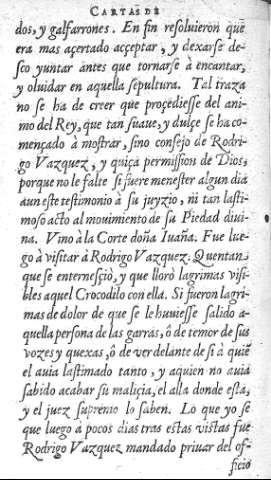 CARTAS DE
dos, y galfarrones. En fin resoluieron que
era mas açertado acceptar, y dexarse de-
sco yuntar antes que tornarse à encantar,
y oluidar en aquella sepultura. Tal traza
no se ha de creer que proçediesse del ani-
mo del Rey, que tan suaue, y dulçe se ha co-
mençado à mostrar, sino consejo de Rodri-
go Vazquez, y quiça permission de Dios,
porque no le falte si fuere menester algun dia
aun este testimonio à su juyzio, ni tan lasti-
moso acto al mouimiento de su Piedad diui-
na. Vino à la Corte doña Iuaña. Fue lue-
go à visitar à Rodrigo Vazquez. Quentan
que se enternesçiò, y que llorò lagrimas visi-
bles aquel Crocodilo con ella. Si fueron lagri-
mas de dolor de que se le huuiesse salido a-
quella persona de las garras, ô de temor de sus
vozes y quexas, ô de ver delante de si à quiẽ
el auia lastimado tanto, y aquien no auia
sabido acabar su maliçia, el alla donde esta,
y el juez supremo lo saben. Lo que yo se
que luego à pocos dias tras estas vistas fue
Rodrigo Vazquez mandado priuar del of-
ficio